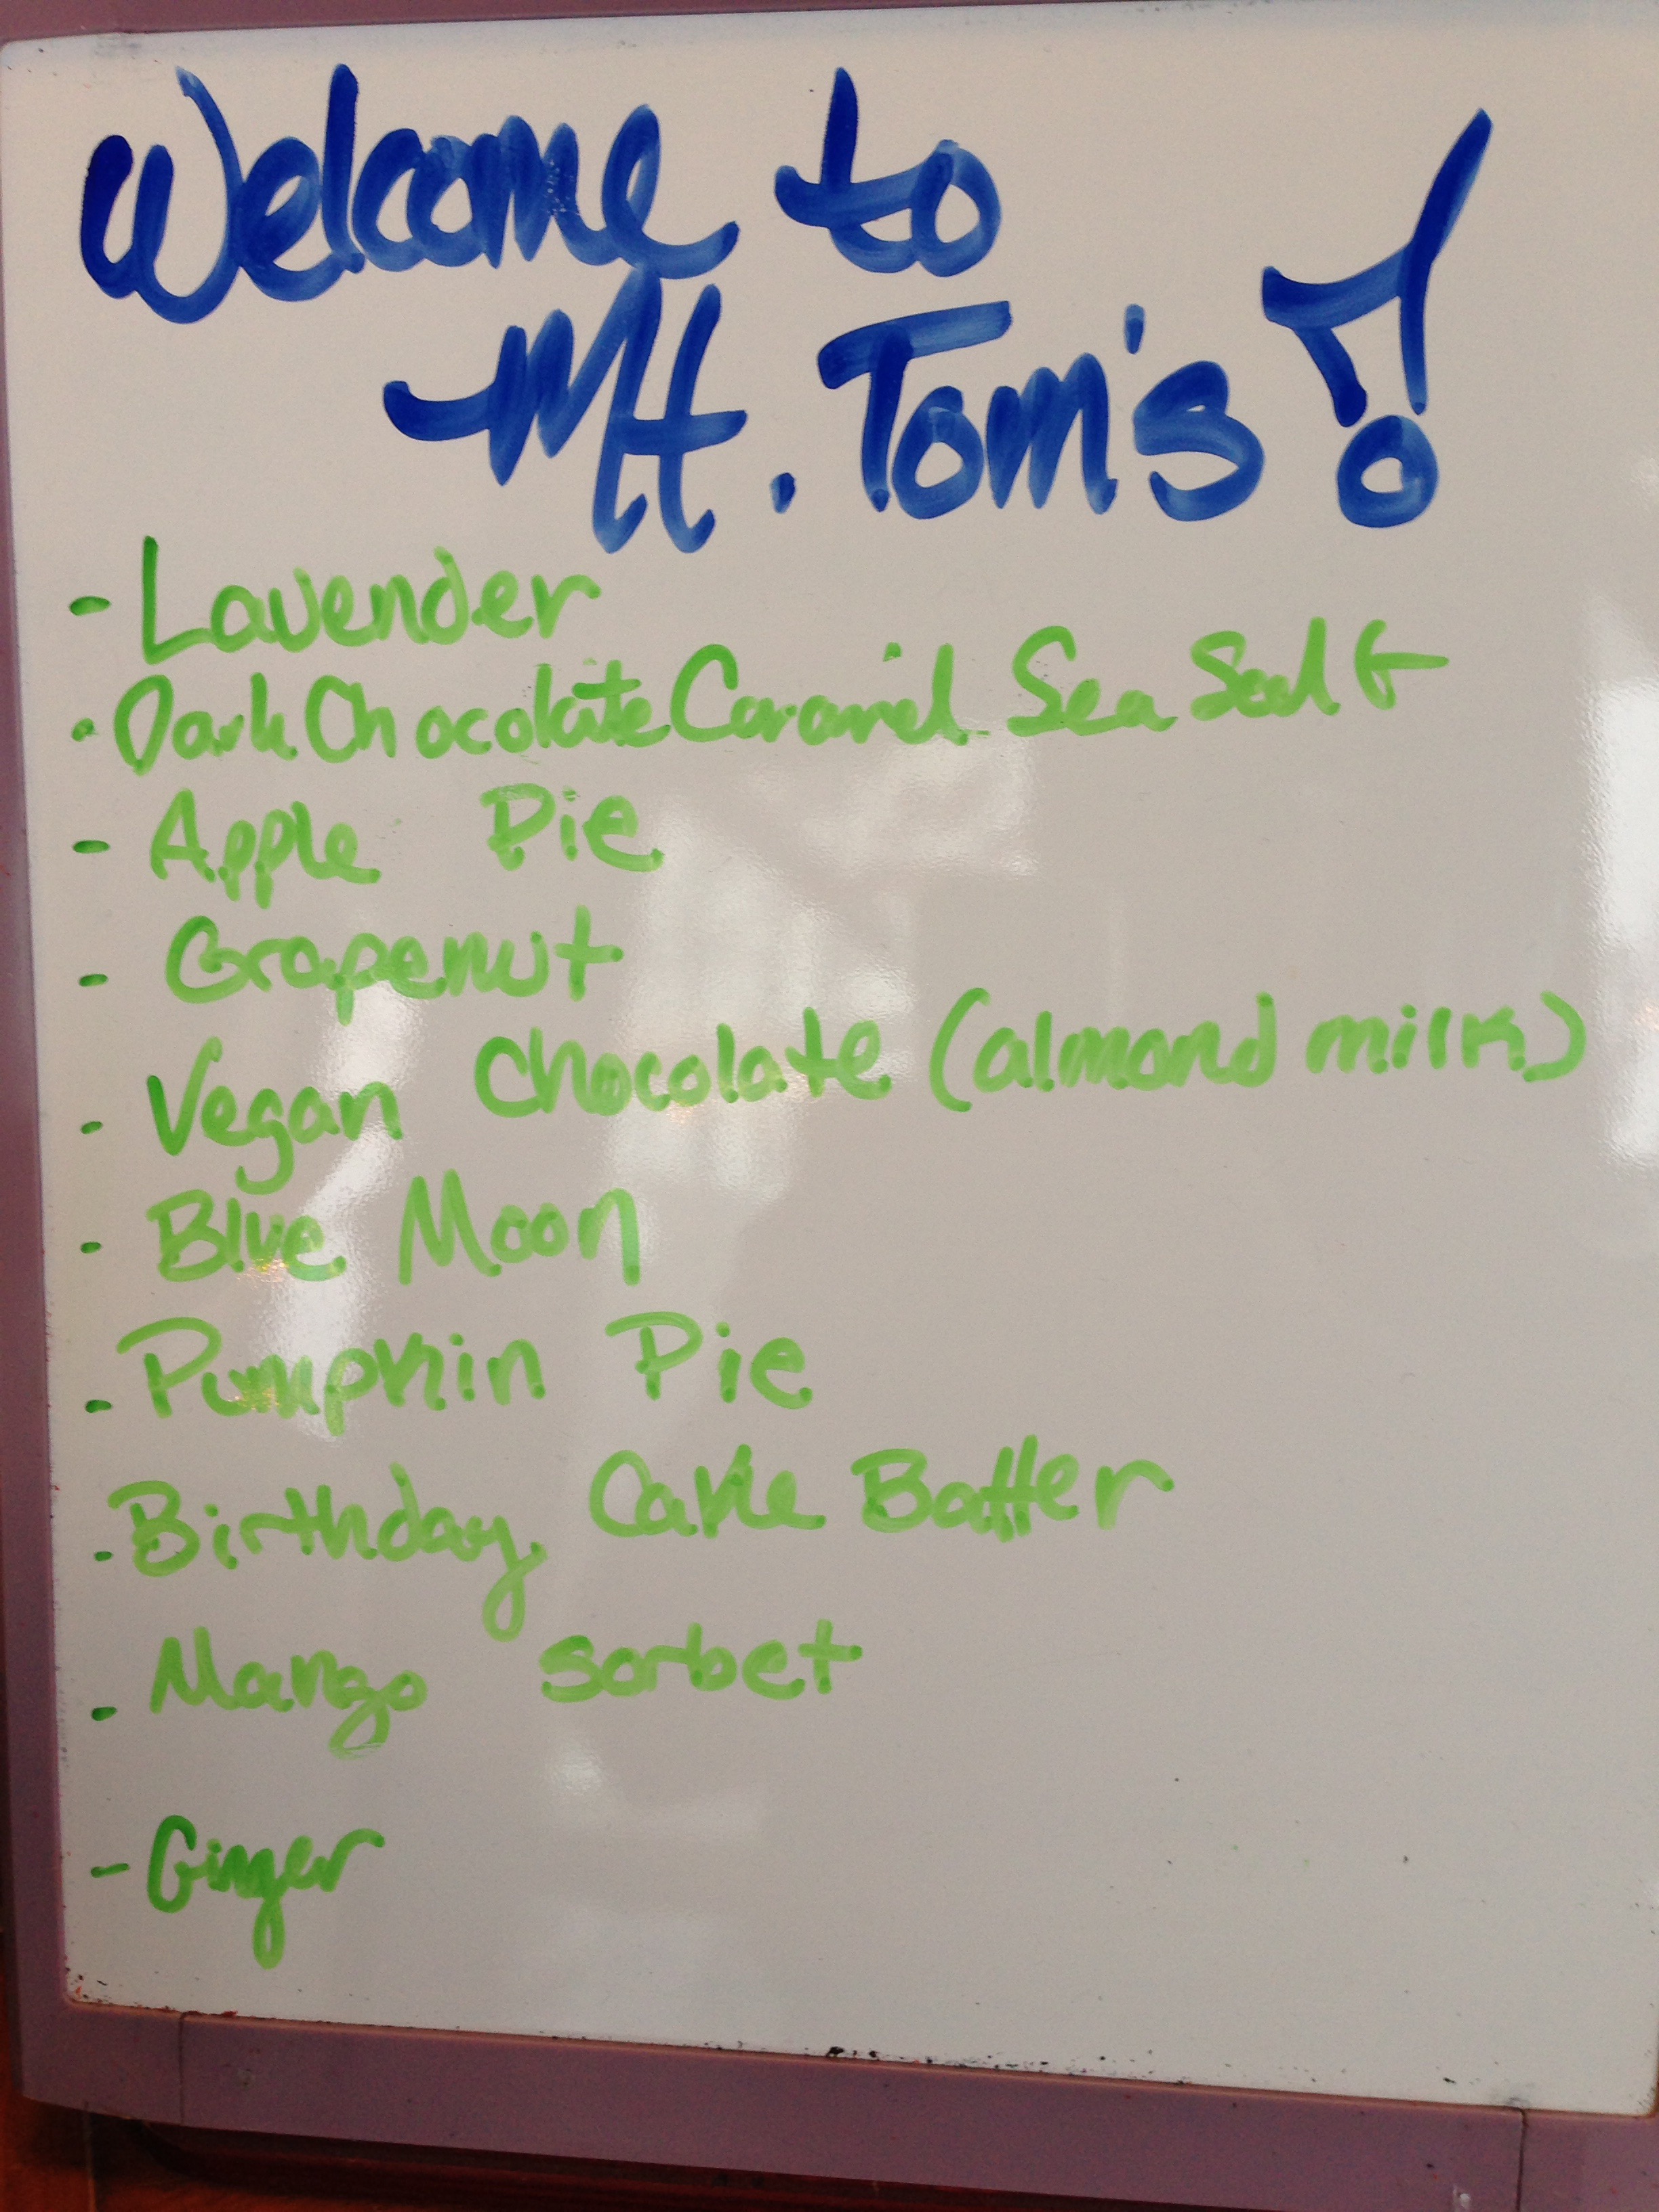 Welcome to
Mt. Tom's!
- Lavender
- Dark Chocolate Caramel Sea Salt
- Apple Pie
- Grapenut
- Vegan Chocolate (almond milk)
- Blue Moon
- Pumpkin Pie
- Birthday Cake Batter
- Mango sorbet
- Ginger